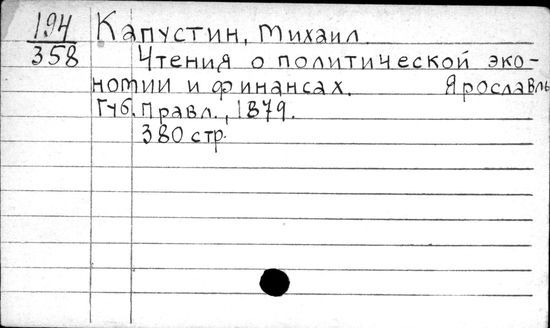 194 Капустин, Михаил.
358 Чтения о политической эко-
номии и финансах. Ярославль
Губ. Правл., 1879.
380 стр.